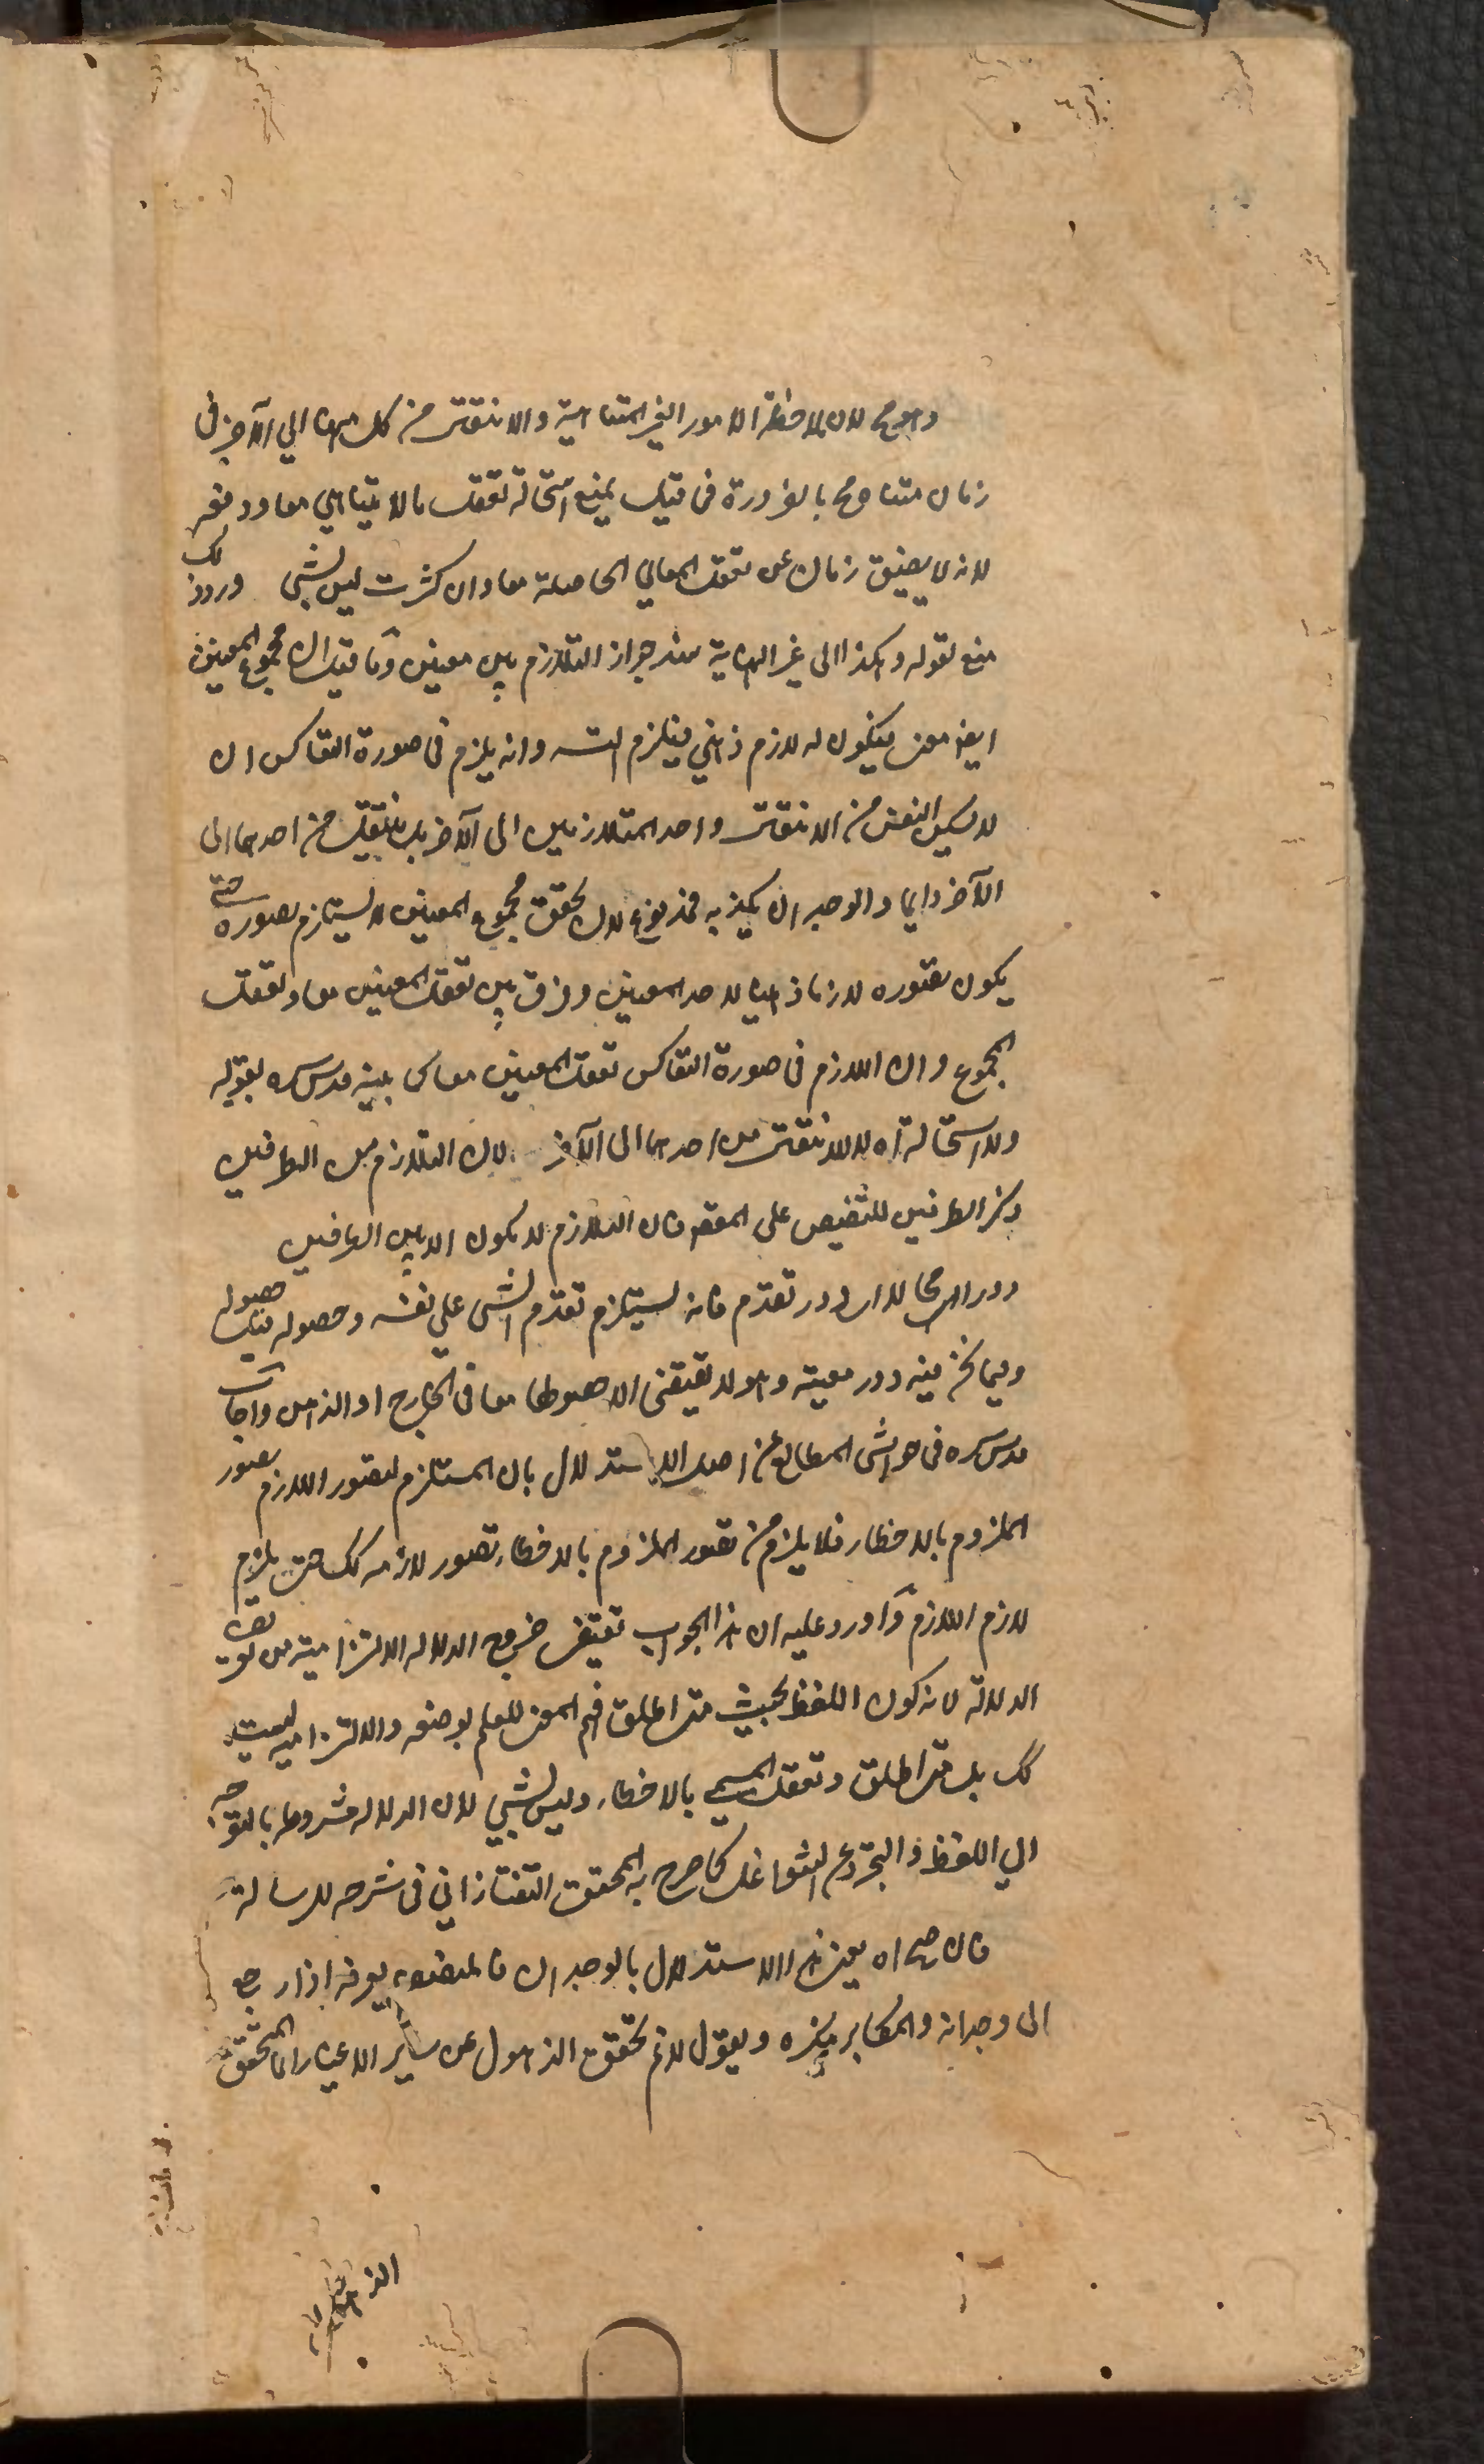 وهو مح لان ملاحظة الامور الغير المتناهية والانتقال من كل منها الي الآخر في
زمان متناه مح بالضرورة فما قيل يمنع استحالة تعقل ما لا يتناهي معا ودفعه
لانه لا يضيق زمان عن تعقل المعاني الحاصلة معا وان كثرت ليس بشي وروده كك
منع لقوله وهكذا الى غير النهاية سند جواز التلازم بين معنيين وما قيل ان مجموع المعنيين
ايضا معنى فيكون له لازم ذهني فيلزم التسه وانه يلزم في صورة التعاكس ان
لا يسكن النفس من الانتقال واحد المتلازمين الى الآخر بل ينتقل من احدهما الى
الآخر دايما والوجدان يكذبه فمدفوع لان تحقق مجموع المعنيين لا يستلزم تصوره حتى
يكون تصوره لازما ذهنيا لاحد المعنيين وفرق بين تعقل المعنيين معا وتعقل
المجموع وان اللازم في صورة التعاكس تعقل المعنيين معا كما بينه قدس سره بقوله
ولا استحالة اه لا الانتقال من احدهما الى الآخر لان التلازم من الطرفين
ذكر الطرفين للتنصيص على المقصود فان التلازم لا يكون الا بين الطرفين
دور اهـ محال لا ان دور تقدم فانه يستلزم تقدم الشي علي نفسه وحصوله قبل حصوله
وفيما نحن فيه دور معية وهو لا يقتضي الا حصولهما معا في الخارج او الذهن واجاب
قدس سره في حواشي المطالع عن اصل الاستدلال بان المستلزم لتصور اللازم تصور
الملزوم بالاخطار فلا يلزم من تصور الملزوم بالاخطار تصور لازمه كك حتى يلزم
لازم اللازم وما اورد عليه ان هذا الجواب يقتضي خروج الدلالة الالتزامية من تعريف
الدلالة لانه كون اللفظ بحيث متى اطلق فهم المعنى للعلم بوضعه والالتزامية ليست
كك بل متى اطلق وتعقل المسمي بالاخطار وليس بشي لان الدلالة مشروطة بالتوجه
الي اللفظ والتجرد عن الشواغل كما صرح به المحقق التفتازاني في شرحه للرسالة
قال مح اه يعني هذا الاستدلال بالوجدان فالمنصف يعرفه اذا رجع
الى وجدانه والمكابر ينكره ويقول لانم تحقق الذهول عن ساير الاغيار انما المتحقق